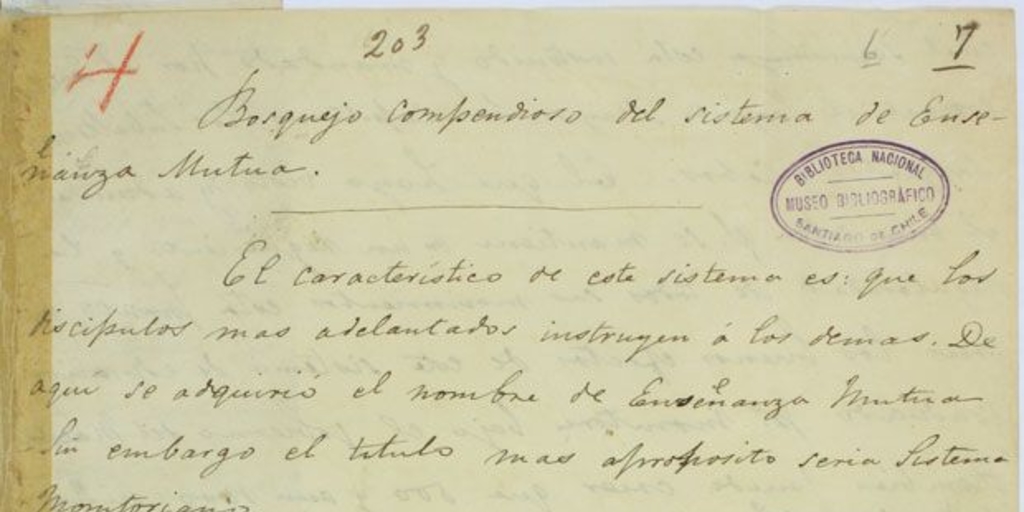 4
203
6 7
Bosquejo compendioso del sistema de Ense-
ñanza Mutua.
BIBLIOTECA NACIONAL
MUSEO BIBLIOGRÁFICO
SANTIAGO DE CHILE
El característico de este sistema es: que los
discipulos mas adelantados instruyen á los demas. De
aqui se adquirio el nombre de Enseñanza Mutua
Sin embargo el titulo mas aproposito seria Sistema
Monitoriano